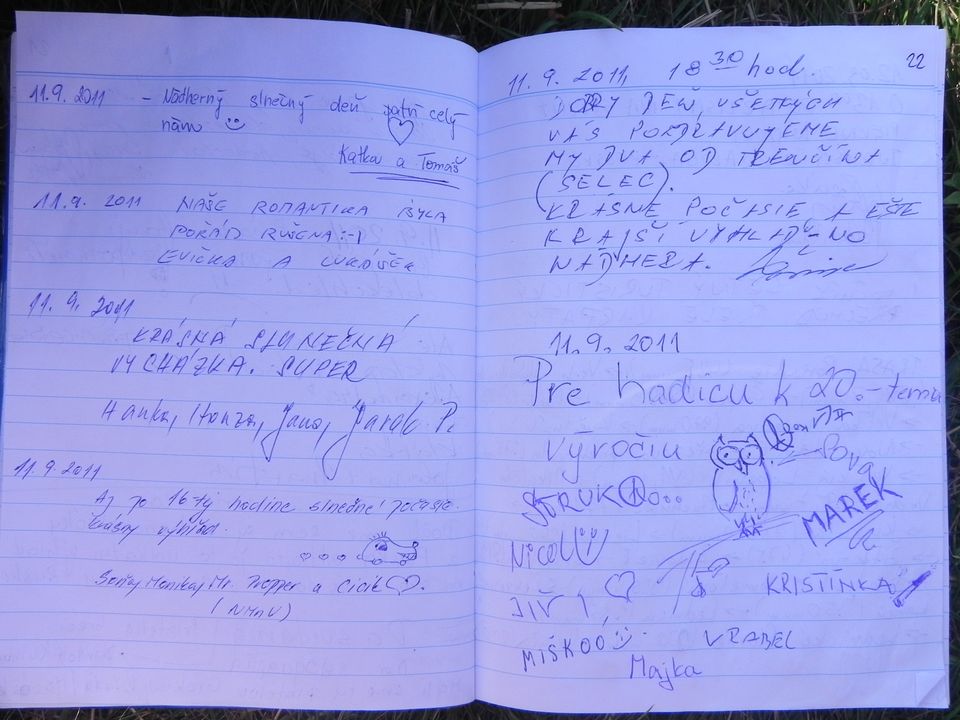 11.9. 2011 - Nádherný slnečný deň patrí celý
nám
Katka a Tomáš
11.9. 2011 NAŠE ROMANTIKA BYLA
POŘÁD RUŠENA :-)
EVIČKA A LUKÁŠEK
11. 9. 2011
KRÁSNÁ SLUNEČNÁ
VYCHÁZKA. SUPER
Hanka, Honza, Jana, Jarek P.
11.9 2011
Aj po 16-tej hodine slnečné počasie.
krásny výhľad.
Soňa, Monika, Mr. Propper a Cicik
(NMnV)
22
11. 9. 2011, 18 30 hod.
DOBRÝ DEŇ VŠETKÝCH
VÁS POZDRAVUJEME
MY DVA OD TRENČÍNA
(SELEC).
KRÁSNE POČASIE, A EŠTE
KRAJŠÍ VÝHĽAD - NO
NÁDHERA.
11.9. 2011
Pre hadicu k 20.-temu
výročiu
Nicol
MAREK
JIŘÍ
KRISTÍNKA
MIŠKOÓ
VRABEL
Majka